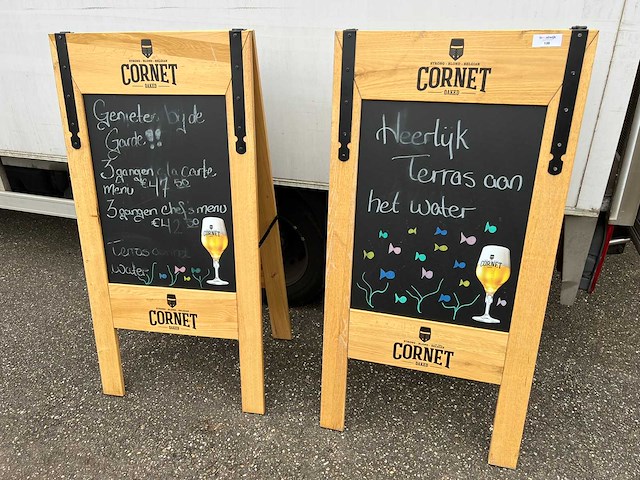 CORNET
OAKED
Genieten bij de
Garde!!
3 gangen a la carte
menu €47.50
3 gangen chef's menu
€42.50
Terras aan
Water
CORNET
CORNET
OAKED
STRONG · BLOND · BELGIAN
CORNET
OAKED
Heerlijk
Terras aan
het water
CORNET
CORNET
OAKED